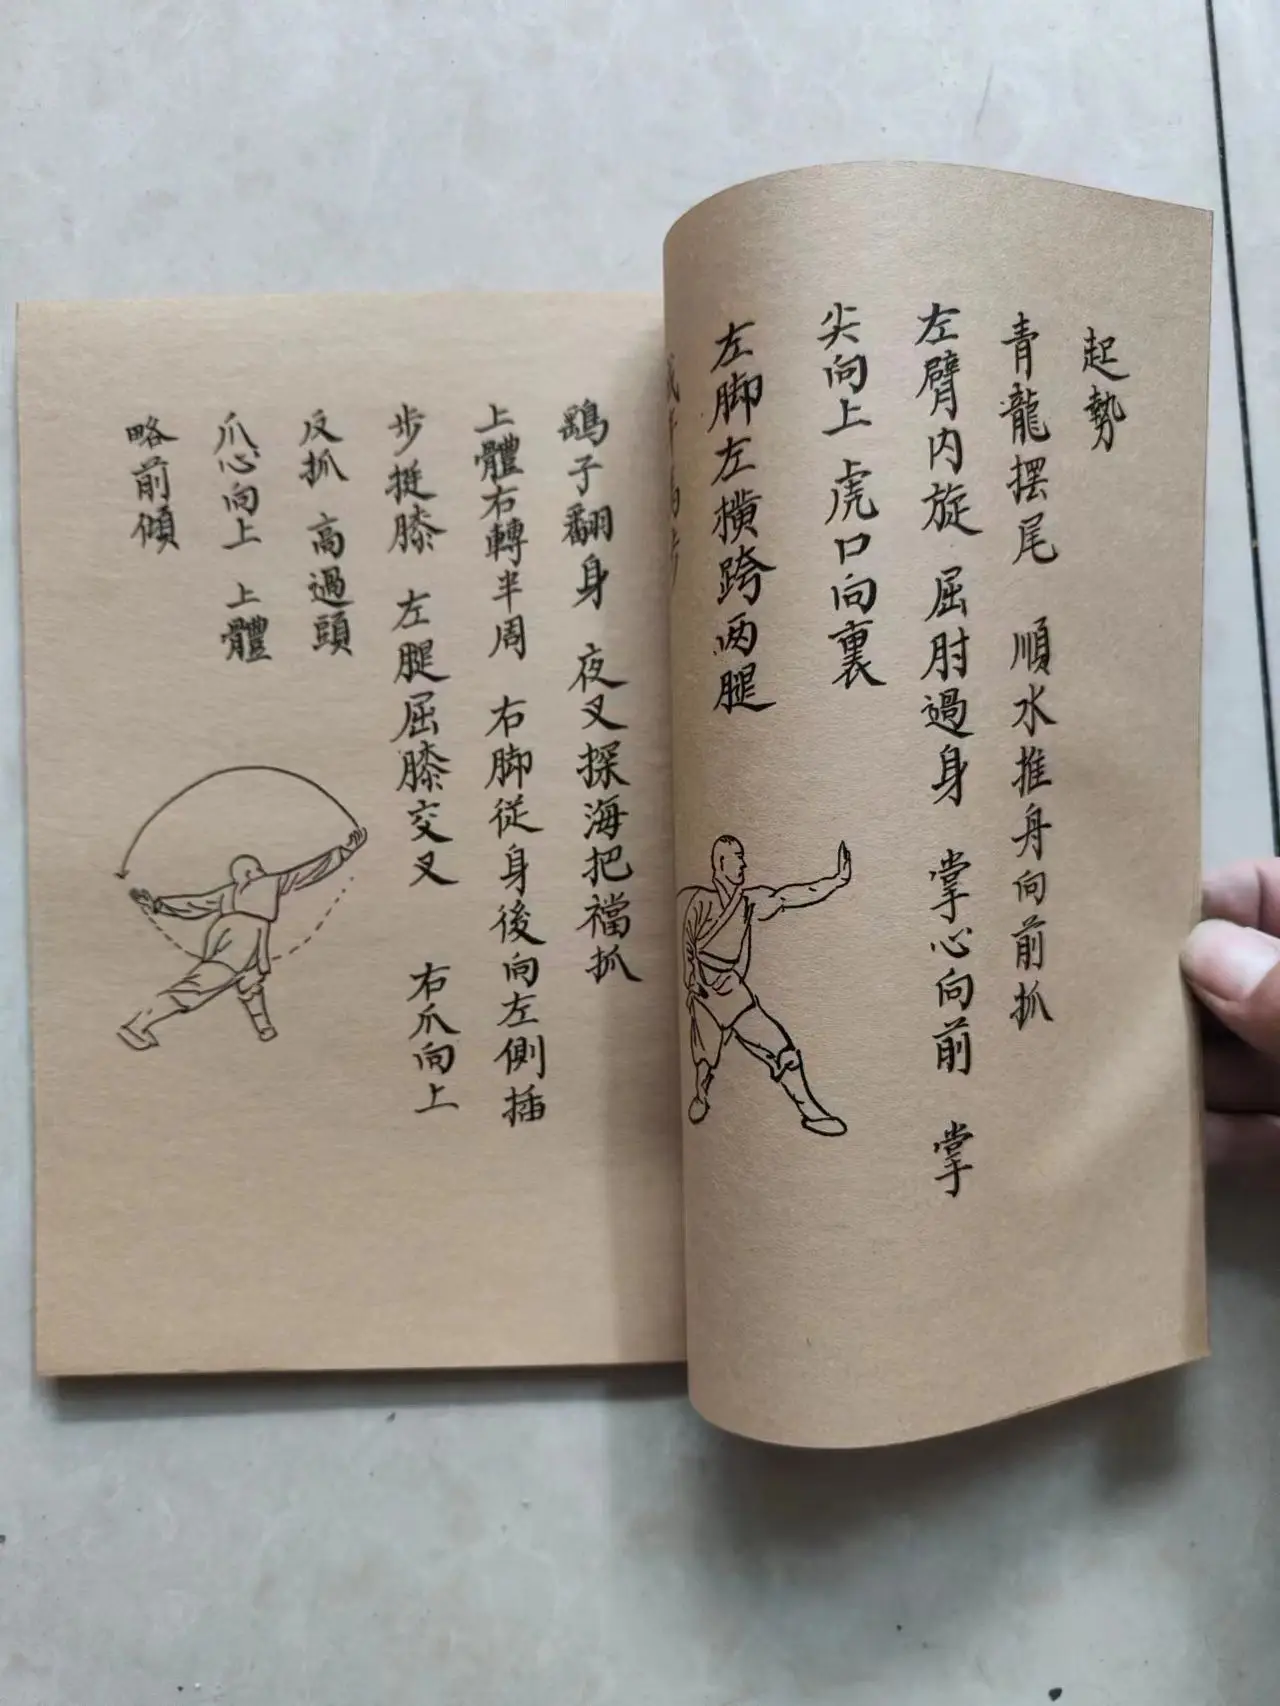 起勢
青龍摆尾 順水推舟向前抓
左臂内旋 屈肘過身 掌心向前 掌
尖向上 虎口向裏
左脚左横跨两腿
鷂子翻身 夜叉探海把襠抓
上體右轉半周 右脚從身後向左側插
步挺膝 左腿屈膝交叉 右爪向上
反抓 高過頭
爪心向上 上體
略前傾